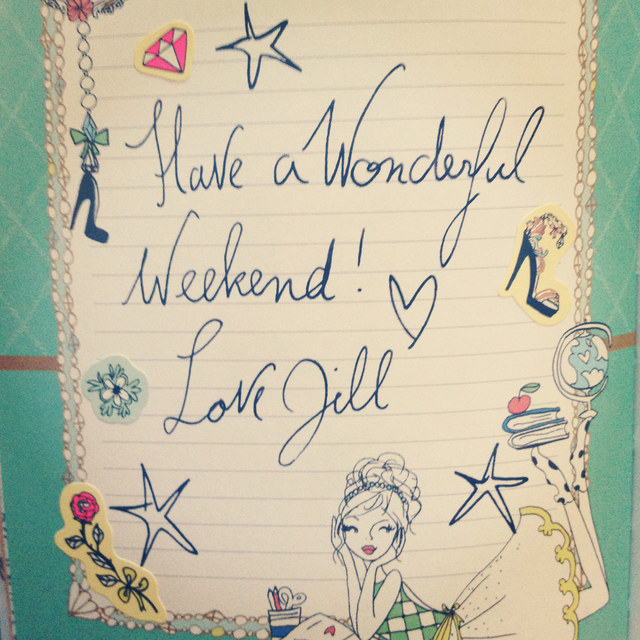 Have a Wonderful
Weekend!
Love Jill